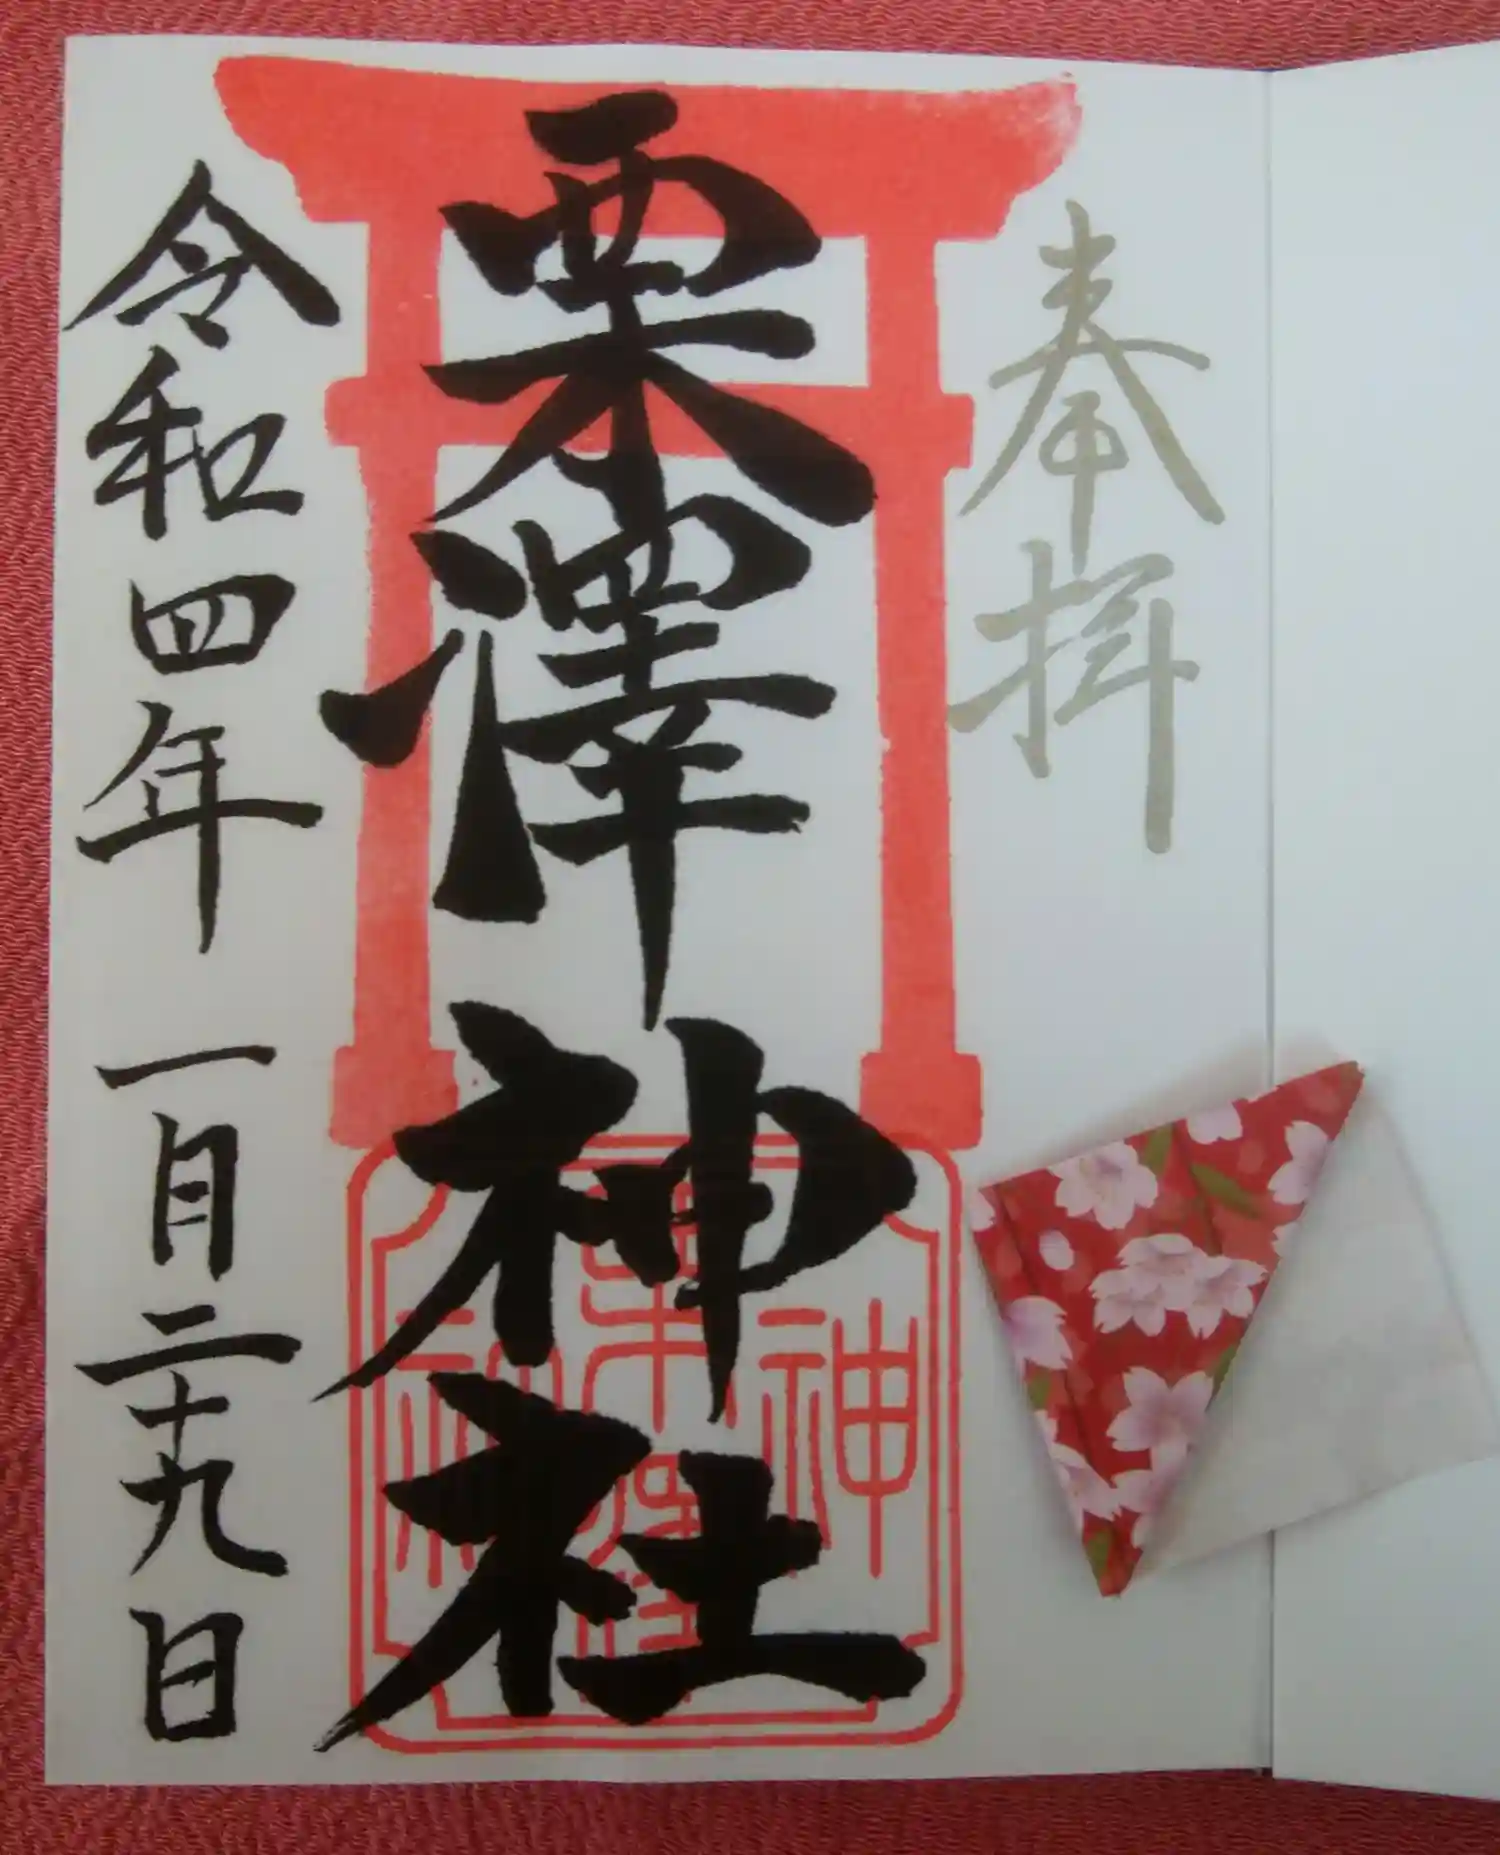 奉拝
栗澤神社
栗澤神社
令和四年一月二十九日